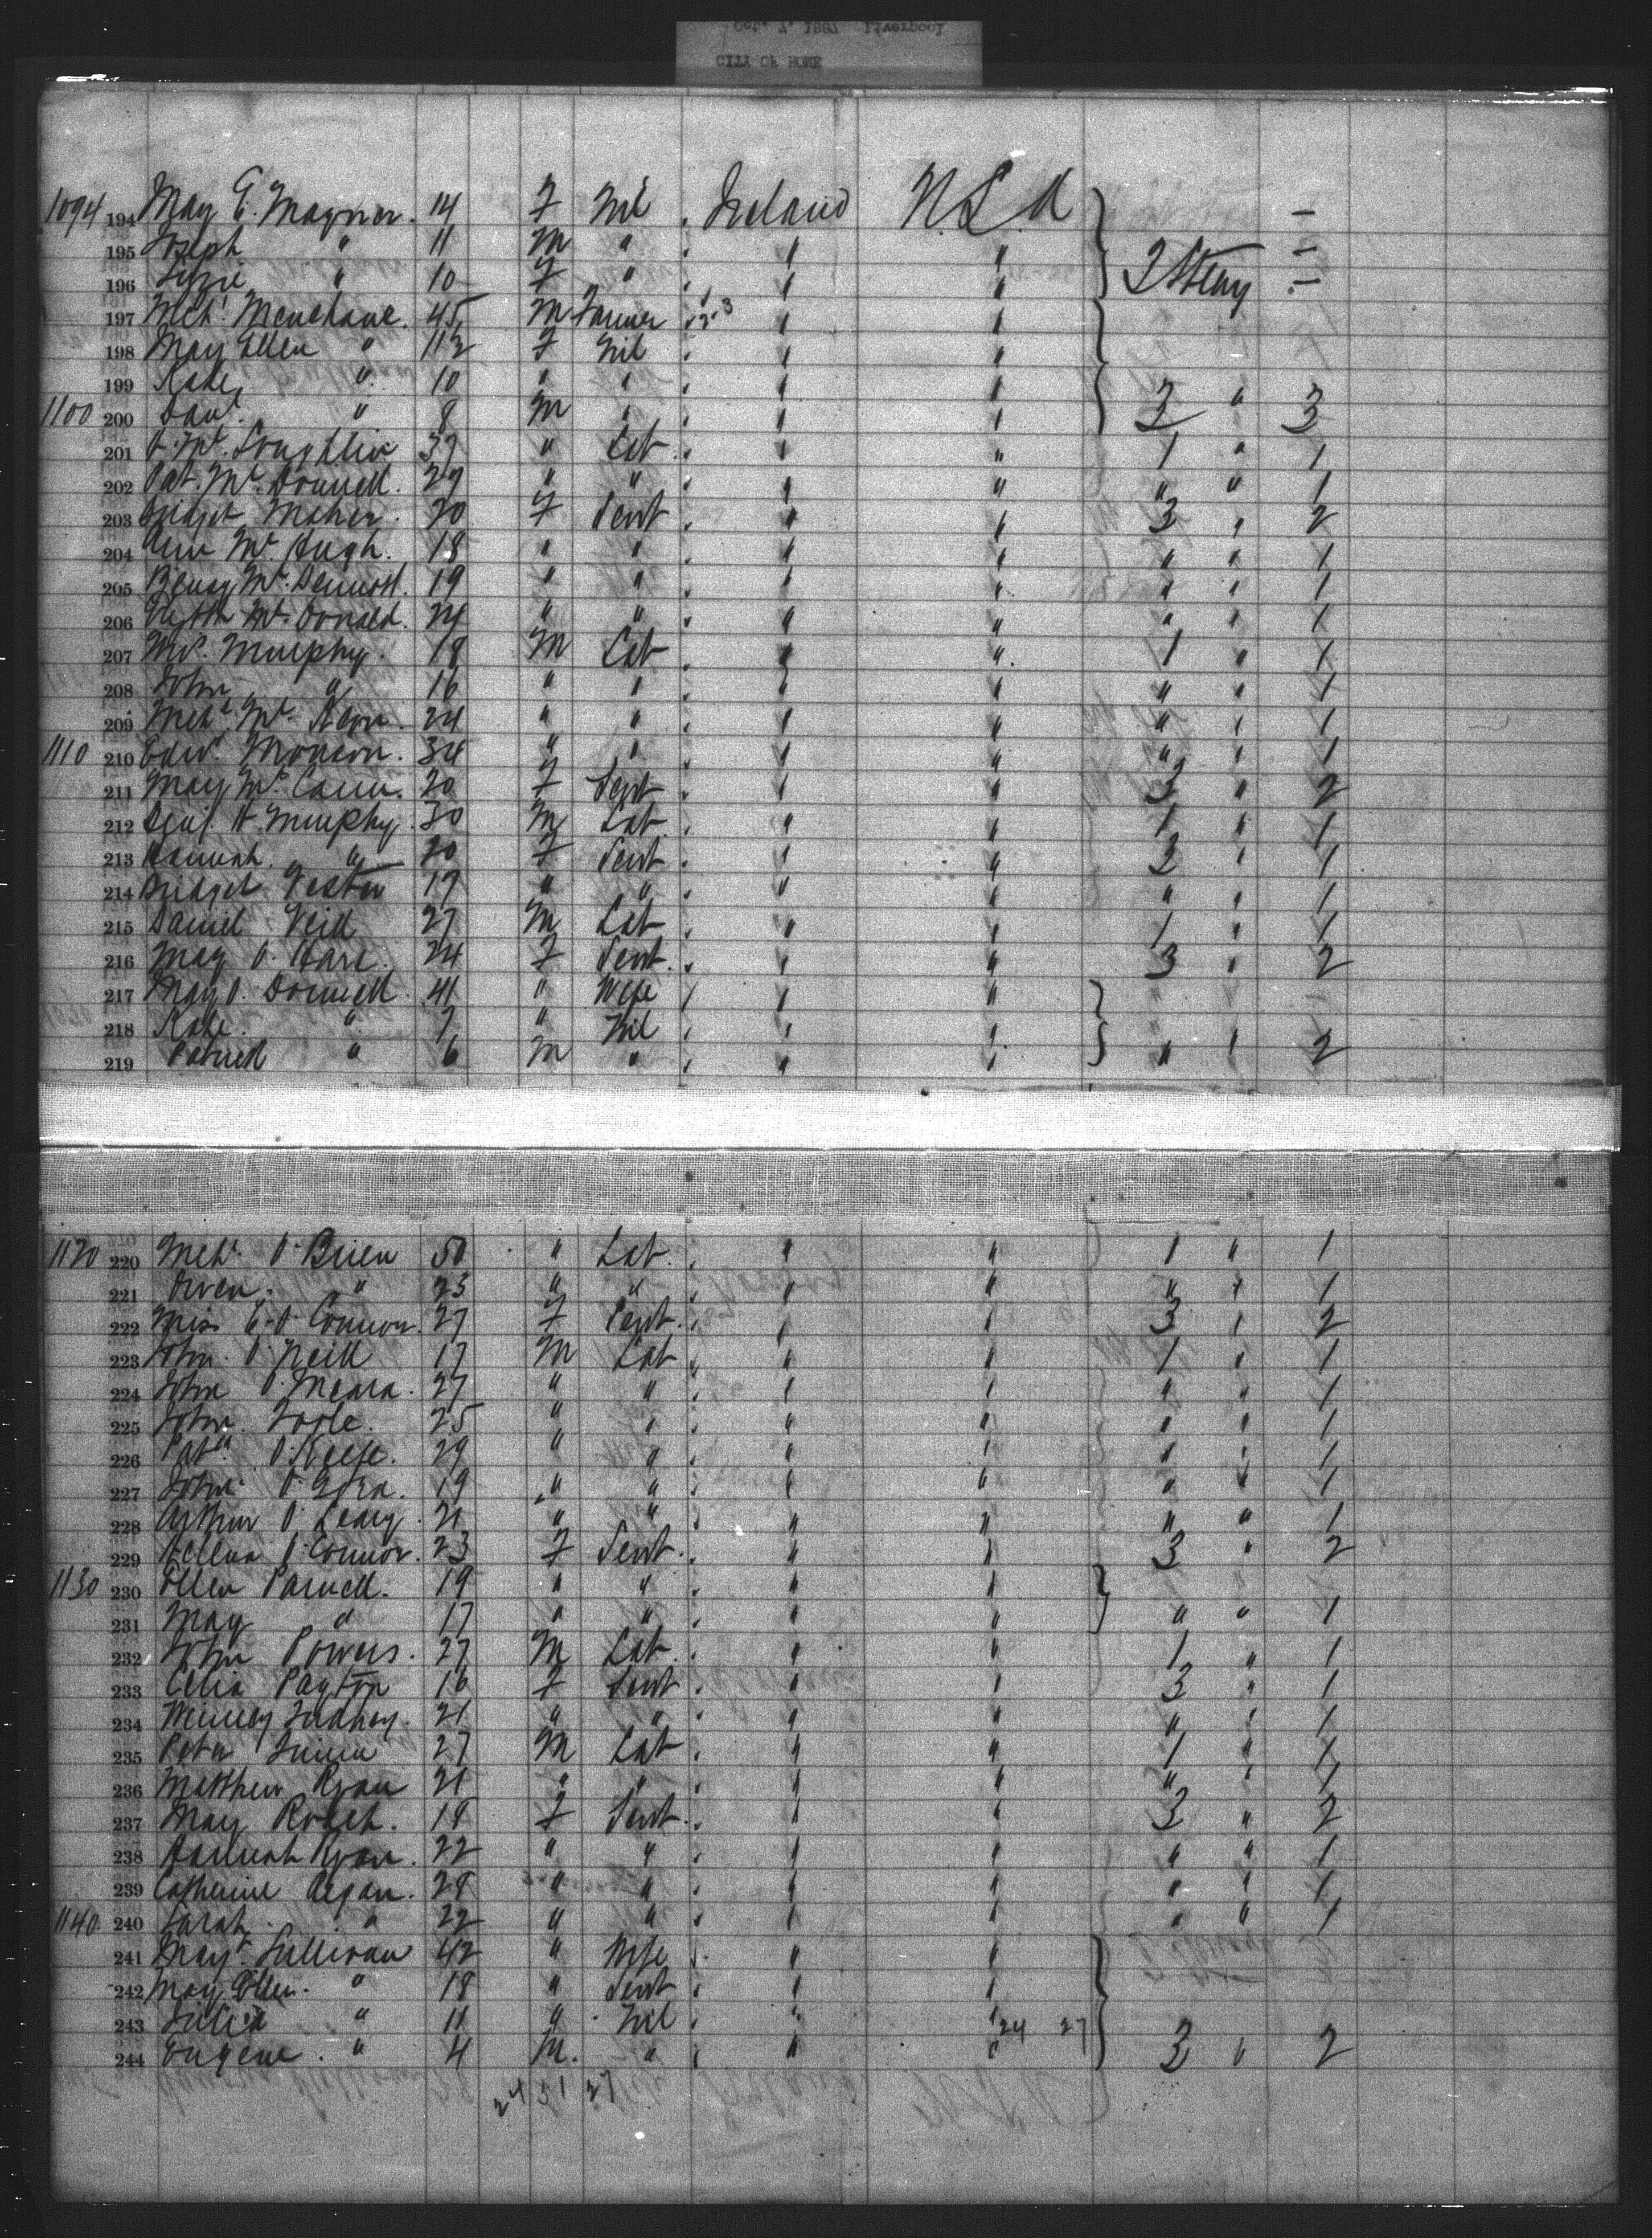 1094 194 May E. Magner. 14 F Nil Ireland U.S.A
195 Joseph " 11 M " " " –
196 Lizzie " 10 F " " " 2 Steny –
197 Mchl. Menehane. 45 M Farmer " "
198 May Ellen " 11½ F Nil " "
199 Kate " 10 " " " "
1100 200 Danl. " 8 M " " " 3 " 3
201 Mc. Loughlin 37 " Lab. " " 1 " 1
202 Pat. Mc. Donnell. 29 " " " " " " 1
203 Bridget Maher. 20 F Servt. " " 3 " 2
204 Ann Mc. Hugh. 18 " " " " " " 1
205 Mc. Dermott. 19 " " " " " " 1
206 Mc. Donald. 24 " " " " " " 1
207 Murphy. 18 M Lab. " " 1 " 1
208 John " 16 " " " " " " 1
209 Mchl. Mc. 24 " " " " " " 1
1110 210 Edwd. Monson. 34 " " " " " " 1
211 May Mc. Cann. 20 F Servt. " " 3 " 2
212 H. Murphy. 30 M Lab. " " 1 " 1
213 Hannah. " 20 F Servt. " " 3 " 1
214 Bridget 17 " " " " " " 1
215 Daniel Neill 27 M Lab. " " 1 " 1
216 May O. Hare. 24 F Servt. " " 3 " 2
217 May O. Donnell. 41 " Wife " "
218 Kate. " 7 " Nil " "
219 Patrick " 6 M " " " " " 2
1120 220 Mchl. O. Brien 50 " Lab. " " 1 " 1
221 Owen. " 23 " " " " " " 1
222 Miss E. O. Connor. 27 F Servt. " " 3 " 2
223 John. O. Neill 17 M Lab. " " 1 " 1
224 John O. Meara. 27 " " " " " " 1
225 John. Toole. 25 " " " " " " 1
226 Patk. O. Keefe. 29 " " " " " " 1
227 John. O. 19 " " " " " " 1
228 Arthur O. Leary. 21 " " " " " " 1
229 Hellena O. Connor. 23 F Servt. " " 3 " 2
1130 230 Ellen Parnell. 19 " " " "
231 May " 17 " " " " " " 1
232 John Powers. 27 M Lab. " " 1 " 1
233 Celia Payton 16 F Servt " " 3 " 1
234 21 " " " " " " 1
235 Peter 27 M Lab. " " 1 " 1
236 Matthew Ryan 21 " " " " " " 1
237 May Roach. 18 F Servt. " " 3 " 2
238 Hannah Ryan. 22 " " " " " " 1
239 Catherine Regan. 28 " " " " " " 1
1140. 240 Sarah. " 22 " " " " " " 1
241 Sullivan 42 " Wife " "
242 May Ellen. " 18 " Servt " "
243 Julia " 11 " Nil " " 24 27
244 Eugene. " 4 M. " " " 3 " 2
24 51 27
CITY OF ROME
Oct. 7. 1887 Liverpool